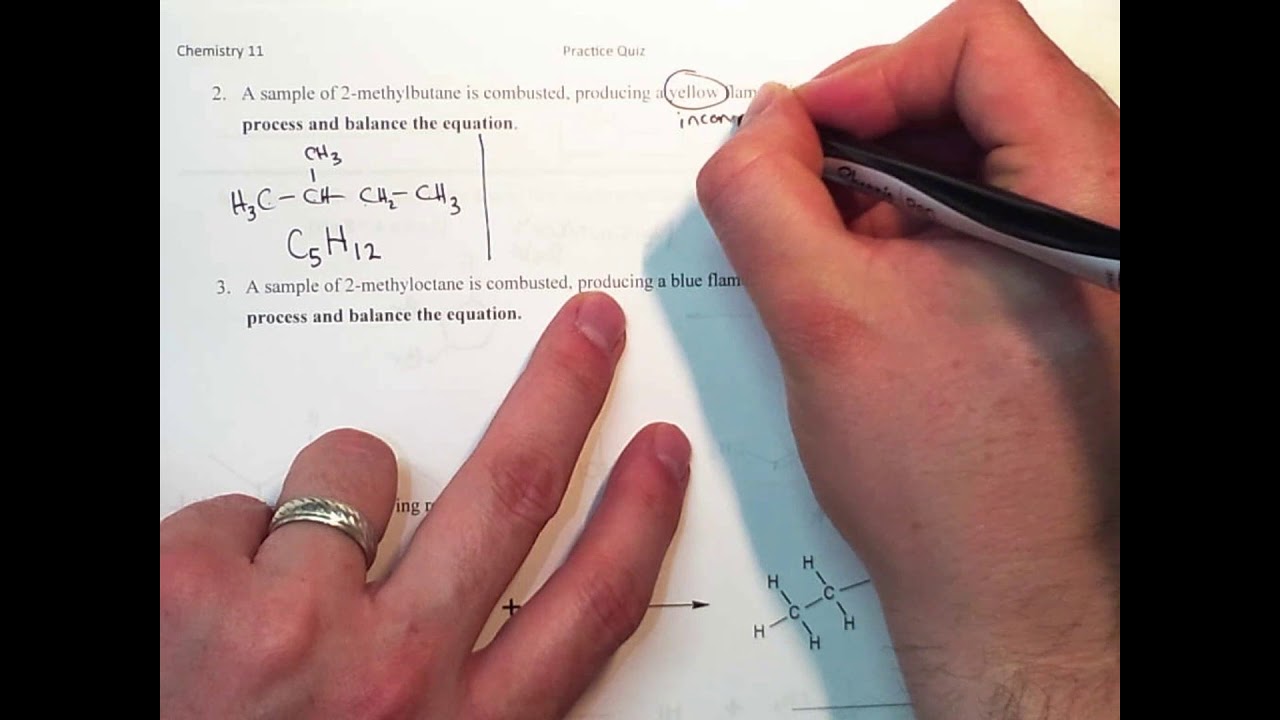 Chemistry 11 Practice Quiz
2. A sample of 2-methylbutane is combusted, producing a yellow flam
incom
process and balance the equation.
CH3
H3C - CH - CH2 - CH3
C5H12
3. A sample of 2-methyloctane is combusted, producing a blue flam
process and balance the equation.
ing
H
H
C
+
C
H
H
H